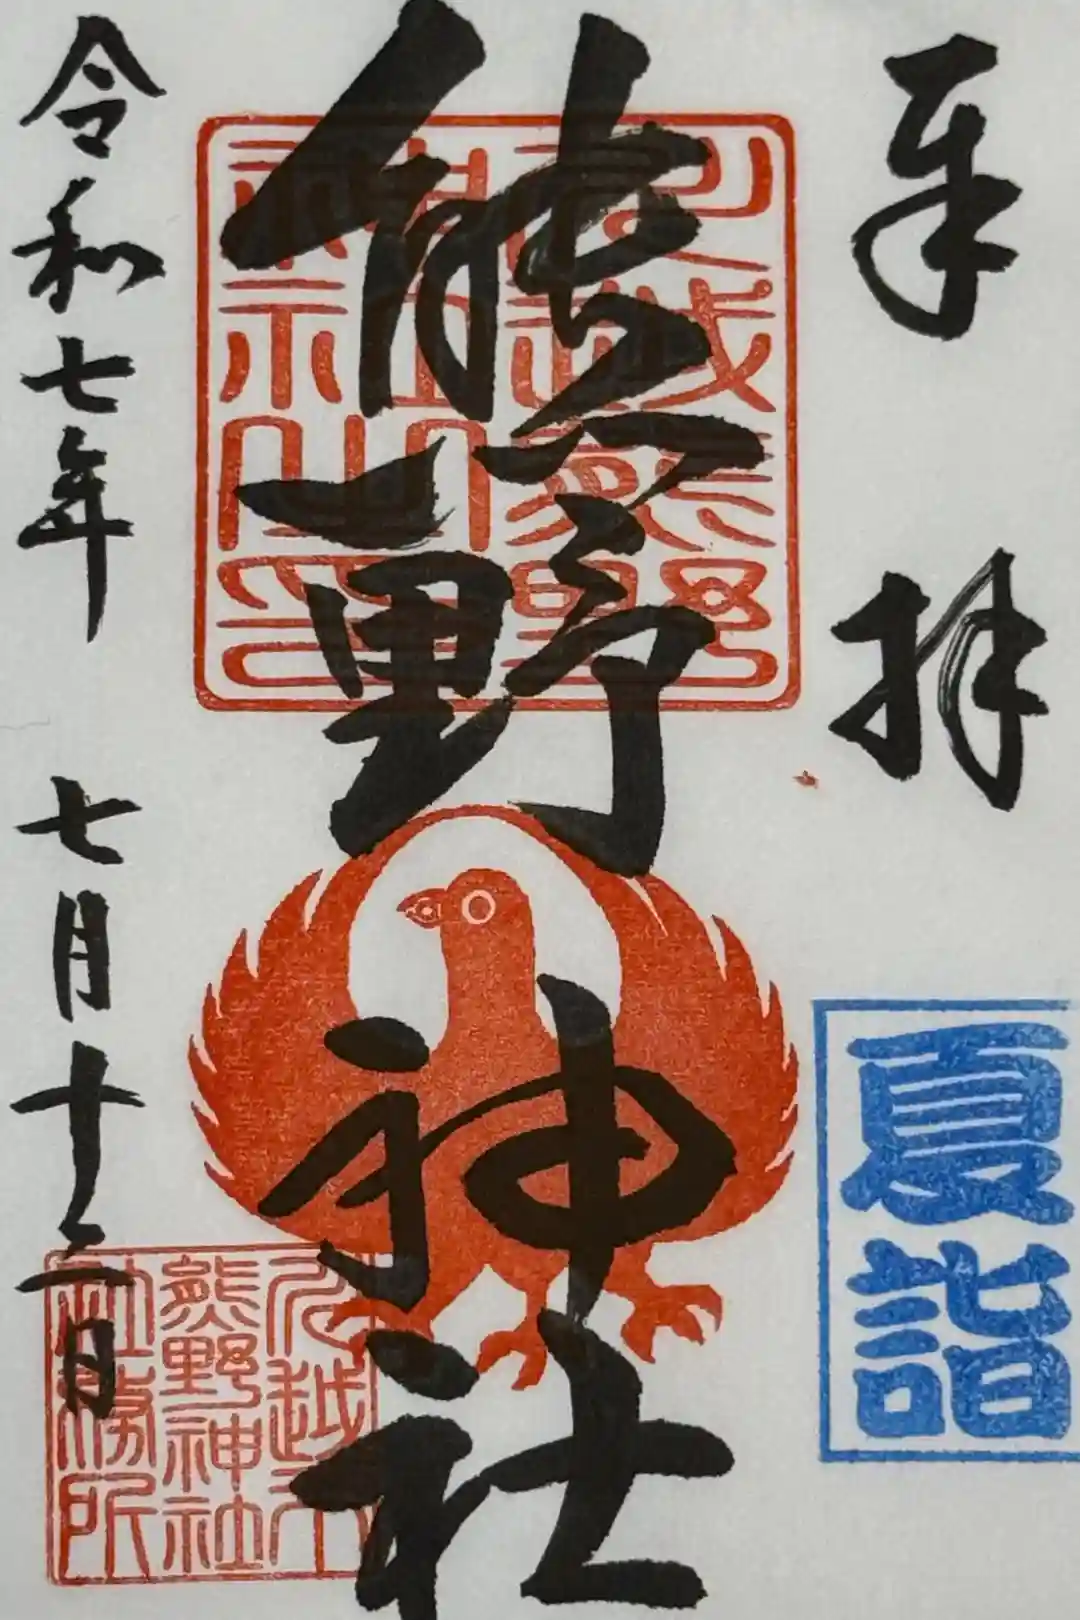 奉拝
夏詣
熊野神社
川越熊野
神社之印
令和七年 七月十二日
熊野神社
社務所